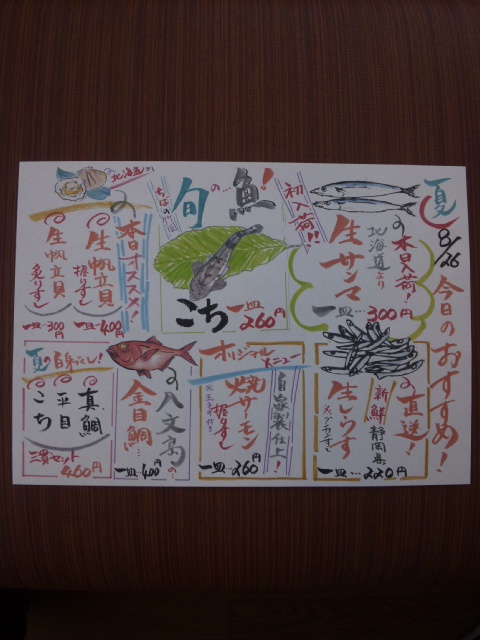 夏
8/26
今日のおすすめ!
初入荷!!
本日入荷!
北海道より
生サンマ
一皿…300円
旬の…魚!
こち
一皿260円
北海道より
の本日オススメ!
生帆立貝
握りずし
一皿…400円
生帆立貝
炙りずし
一皿…300円
の直送!
新鮮 静岡県
生しらす
一皿…220円
オリジナルメニュー
自家製仕上!
焼サーモン
握りずし
一皿…260円
の八丈島の
金目鯛…
一皿…400円
夏の白身づくし!
真鯛
平目
こち
三貫セット
460円